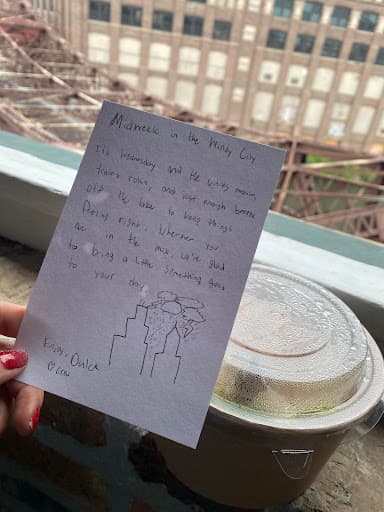 Midweek in the Windy City
It's Wednesday and the vibes movin,
trains rollin, and just enough breeze
off the lake to keep things
feeling right. Wherever you
are in the mix, we're glad
to bring a little something good
to your day
Enjoy,